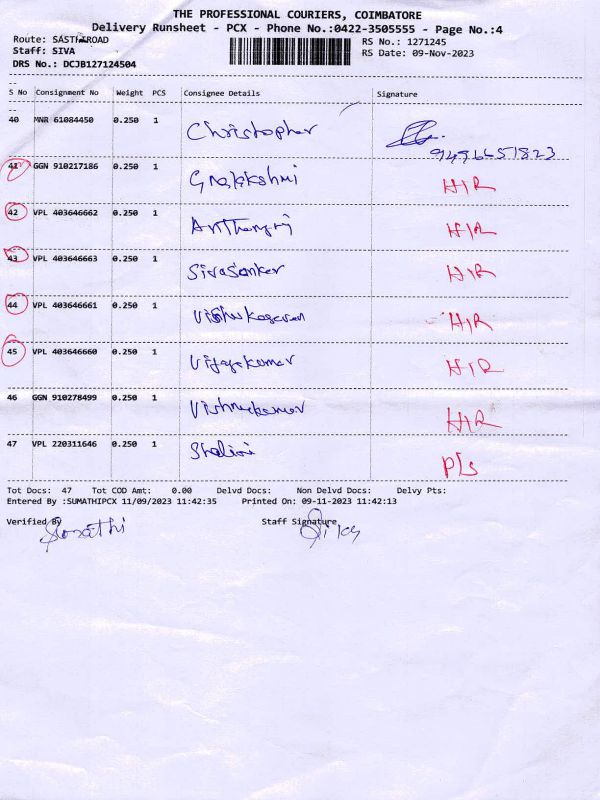 THE PROFESSIONAL COURIERS, COIMBATORE
Delivery Runsheet - PCX - Phone No.:0422-3505555 - Page No.:4
Route: SASTRIROAD
RS No.: 1271245
Staff: SIVA
RS Date: 09-Nov-2023
DRS No.: DCJB127124504
S No Consignment No Weight PCS Consignee Details Signature
40 MNR 61084450 0.250 1 Christopher
9496651823
41 GGN 910217186 0.250 1 H/R
42 VPL 403646662 0.250 1 Anthony H/R
43 VPL 403646663 0.250 1 Sivasanker H/R
44 VPL 403646661 0.250 1 H/R
45 VPL 403646660 0.250 1 Vijayakumar H/R
46 GGN 910278499 0.250 1 Vishnukumar H/R
47 VPL 220311646 0.250 1 Shalini P/s
Tot Docs: 47 Tot COD Amt: 0.00 Delvd Docs: Non Delvd Docs: Delvy Pts:
Entered By :SUMATHIPCX 11/09/2023 11:42:35 Printed On: 09-11-2023 11:42:13
Verified By Staff Signature
Sumathi